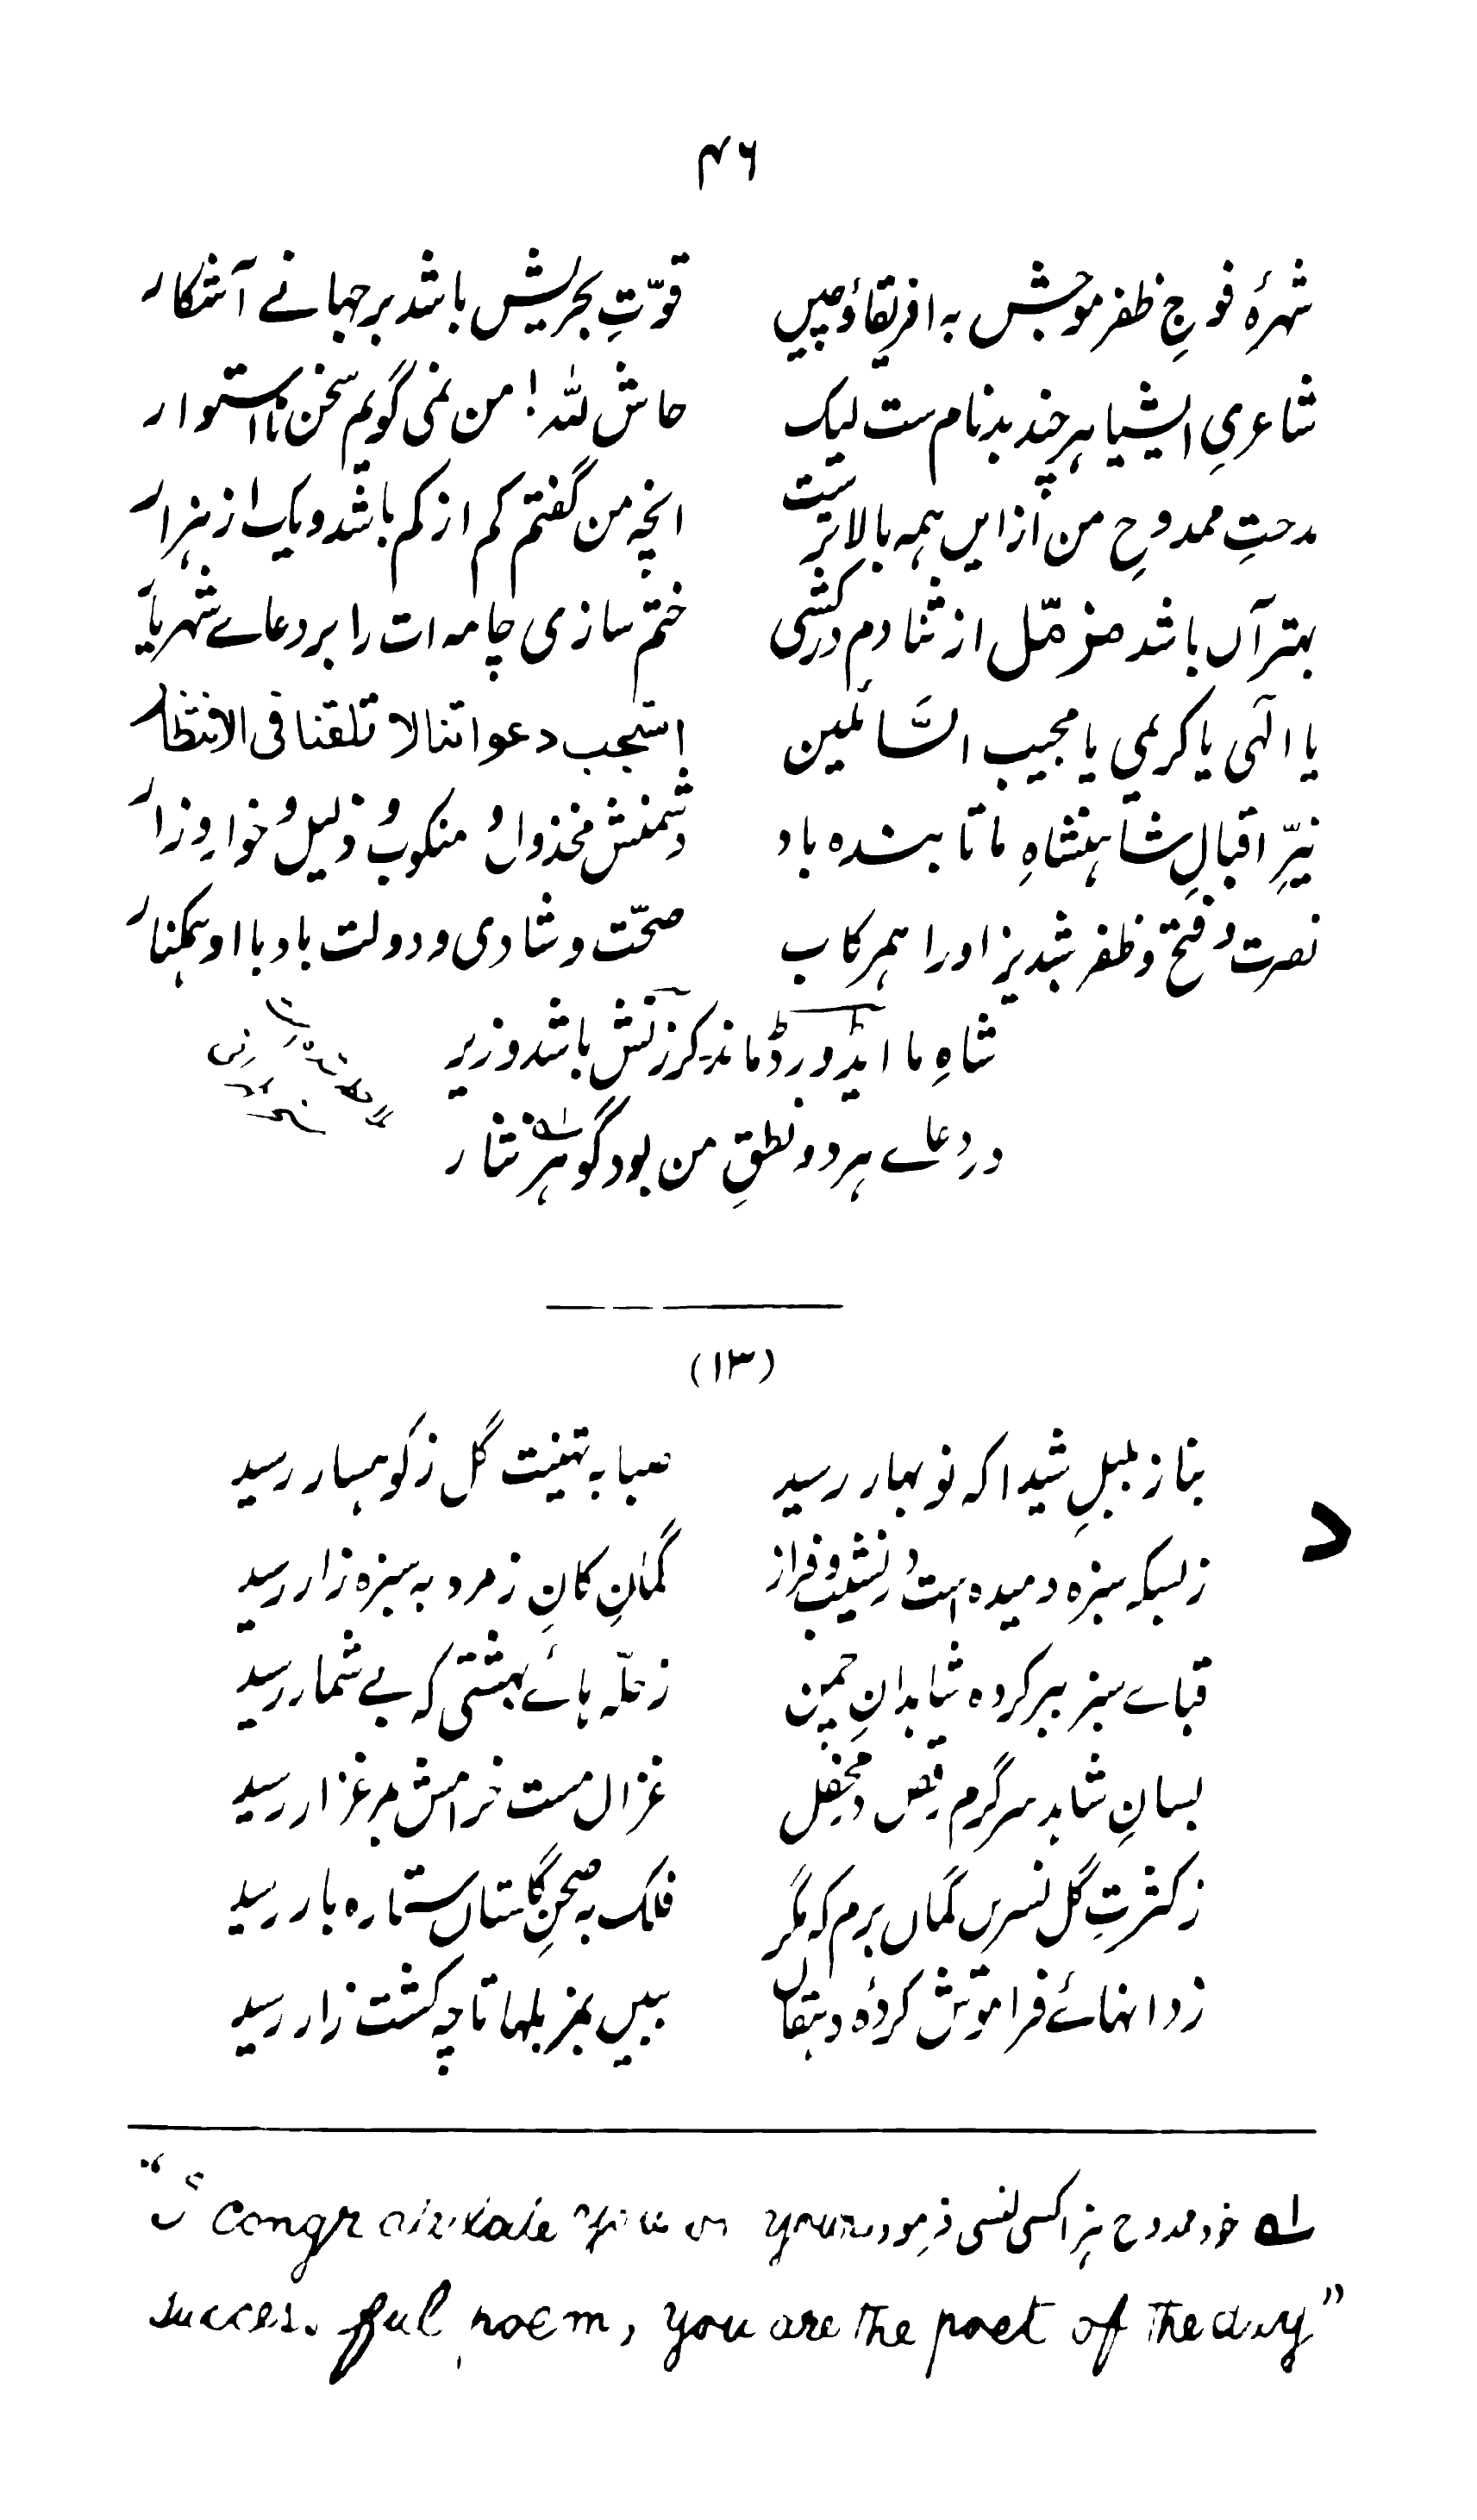 ۴۶
شہرۂ فوجِ ظفر موجش بہ افریقا و چیں قوّتِ بحریش باشد بر جہانے آشکار
شاعریِ ایشیا ہر چند بدنام ست لیک حاش للہ! من نمی گویم سخن نااستوار
مدحتِ ممدوحِ من ازایں ہمہ بالاترست انچہ من گفتم کم از کم باشد و یک از ہزار
بہتر آں باشد مزمّل از ثنا دم درکشی ختم سازی چامہ ات را بر دعاے شہریار
یا الٰہی یا کریمی یا مجیب السَّائلین استجب دعواتنا لا تلقنا فی الانتظار
نیّرِ اقبالِ شاہنشاہِ ما تابندہ باد دشمنش مخذول و منکوب و ذلیل و خوار و زار
نصرت و فتح و ظفر شبدیز اورا ہمرکاب صحّت و شادی و دولت باد با او ہمکنار
شاہِ ما ایڈورڈ ماند کرزنش باشد وزیر
در دعاے ہر دو نطقِ من بود گوہر نثار
(۱۳)
بناز بلبلِ شیدا کہ نو بہار رسید صبا بہ تہنیت گل ز کوہسار رسید
زبسکہ سبزہ دمیدہ است در نشیب و فراز گمانِ کانِ زمرد بہ سبزہ زار رسید
قباے سبز ببر کردہ شاہدانِ چمن ز حلّہ ہائے بہشتی کہ بے شمار رسید
بسانِ شاہد سرگرم رقص در محفل غزال مست خرامش بمرغزار رسید
ز کثرتِ گل نسریں گماں برم کہ مگر فلک بہ صحنِ گلستاں ستارہ بار رسید
ز دانہائے فراموش کردۂ دہقاں ببیں بمزبلہا تا چہ کشت زار رسید
لہ خود ممدوح ہز اکسی لنسی فرمودند "I Congratulate you on your
successful poem, you are the poet of the day"